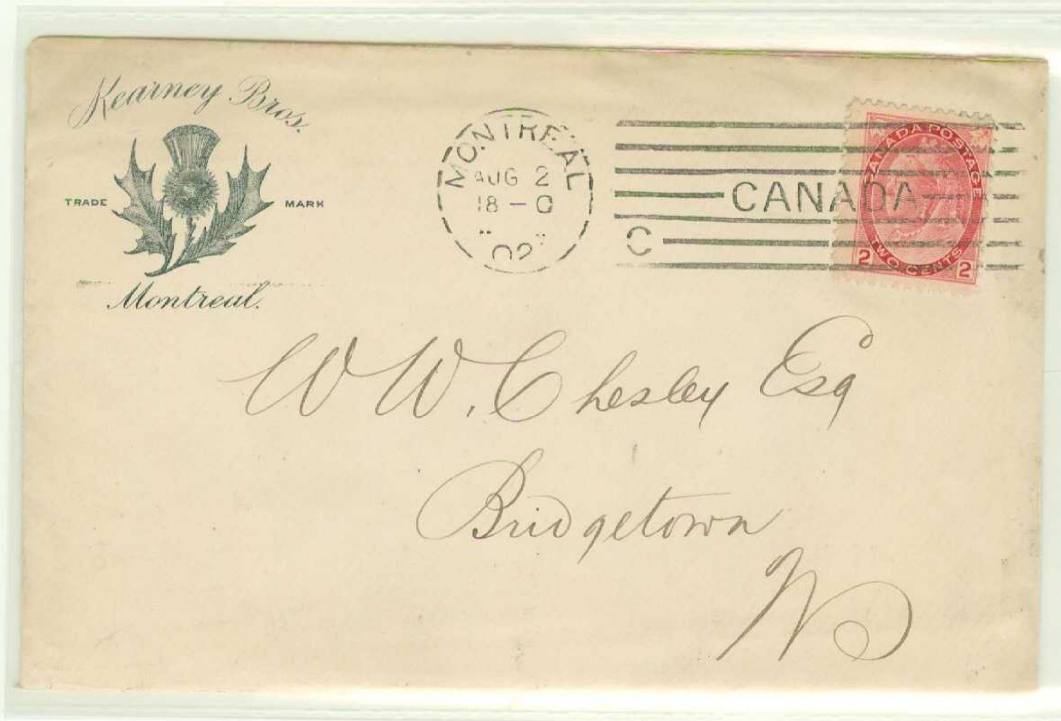 Kearney Bros.
TRADE MARK
Montreal.
MONTREAL
AUG 2
18 - 0
02
CANADA
C
CANADA POSTAGE
TWO CENTS
2 2
W W. Chesley Esq
Bridgetown
NS